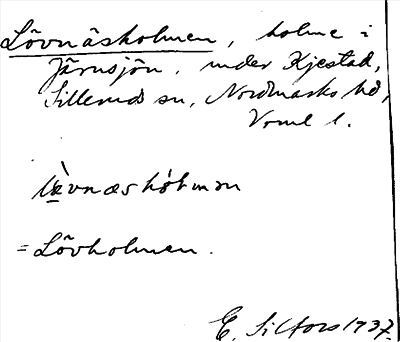 Lövnäsholmen, holme i
Järnsjön, under Kjestad,
Sillerud sn, Nordmarks hd,
Vrml l.
lövnæshólmən
=Lövholmen.
E. Silfors 1937.